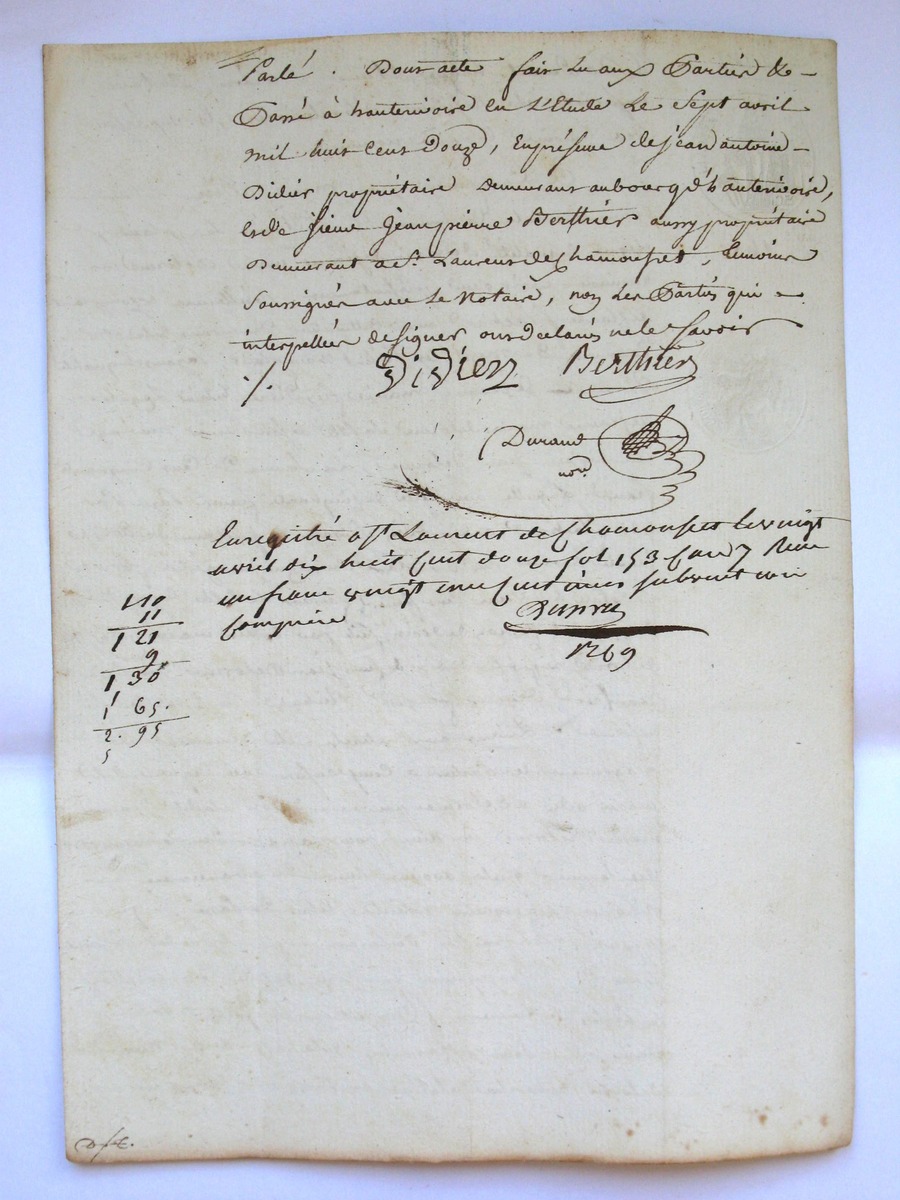 Parlé. Dont acte fait lu aux Parties &
Passé à hauterivoire en l'Etude le Sept avril
mil huit Cent Douze, en présence de jean antoine
Didier propriétaire Demeurant au bourg d'hauterivoire,
et de sieur jean pierre Berthier aussy propriétaire
Demeurant a St. Laurent de Chamousset, temoins
Soussignés avec le Notaire, non les Parties qui
interpellées de signer ont declaré ne le savoir
./.
Didier Berthier
Durand
nore
Enregistré a St Laurent de Chamousset le vingt
avril dix huit cent douze fol 153 case 7 Reçu
un franc vingt un centimes subvention
comprise
Dupré
1269
110
11
121
9
130
1 65.
2. 95
5